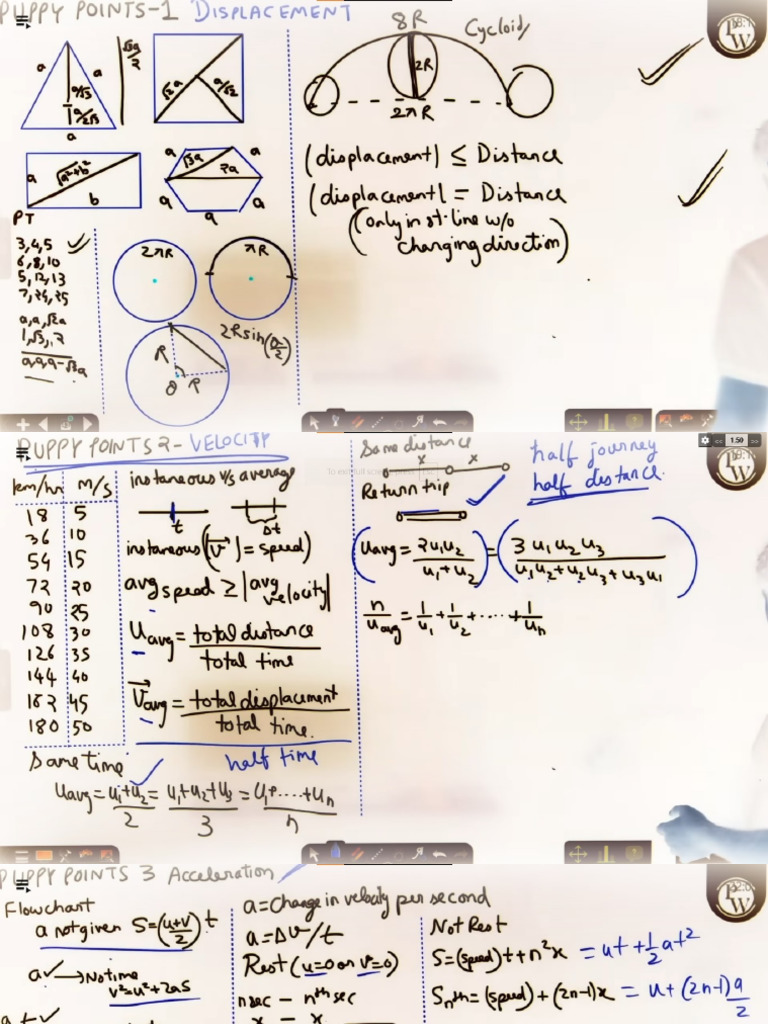 PUPPY POINTS-1 DISPLACEMENT
a
a
a
a/√3
a/2√3
√3a/2
√2a
a/√2
a
√a²+b²
b
a
√3a
a
2a
a
a
a
PT
3,4,5
6,8,10
5,12,13
7,24,25
a,a,√2a
1,√3,2
a,a,a-√3a
2πR
πR
R
θ
R
2Rsin(θ/2)
8R
Cycloid
2R
2πR
|displacement| ≤ Distance
|displacement| = Distance
(only in st. line w/o
changing direction)
PUPPY POINTS 2- VELOCITY
km/hr m/s
18 5
36 10
54 15
72 20
90 25
108 30
126 35
144 40
162 45
180 50
instaneous v/s average
t
Δt
instaneous(|v⃗| = speed)
avg speed ≥ |avg velocity|
uavg = total distance / total time
v⃗avg = total displacement / total time.
Same time
half time
uavg = u₁+u₂/2 = u₁+u₂+u₃/3 = u₁+....+un/n
Same distance
x
x
Return trip
half journey
half distance.
1.50
(uavg = 2u₁u₂/u₁+u₂) = (3u₁u₂u₃/u₁u₂+u₂u₃+u₃u₁)
n/uavg = 1/u₁+1/u₂+.....+1/un
PUPPY POINTS 3 Acceleration
Flowchart
a not given S=(u+v/2)t
a✓→No time
v²=u²+2aS
a+✓
a=Change in velocity per second
a=Δv/t
Rest (u=0 or v=0)
n sec - nth sec
x - x
Not Rest
S=(speed)t+n²x = ut+½at²
Snth=(speed)+(2n-1)x = u+(2n-1)a/2